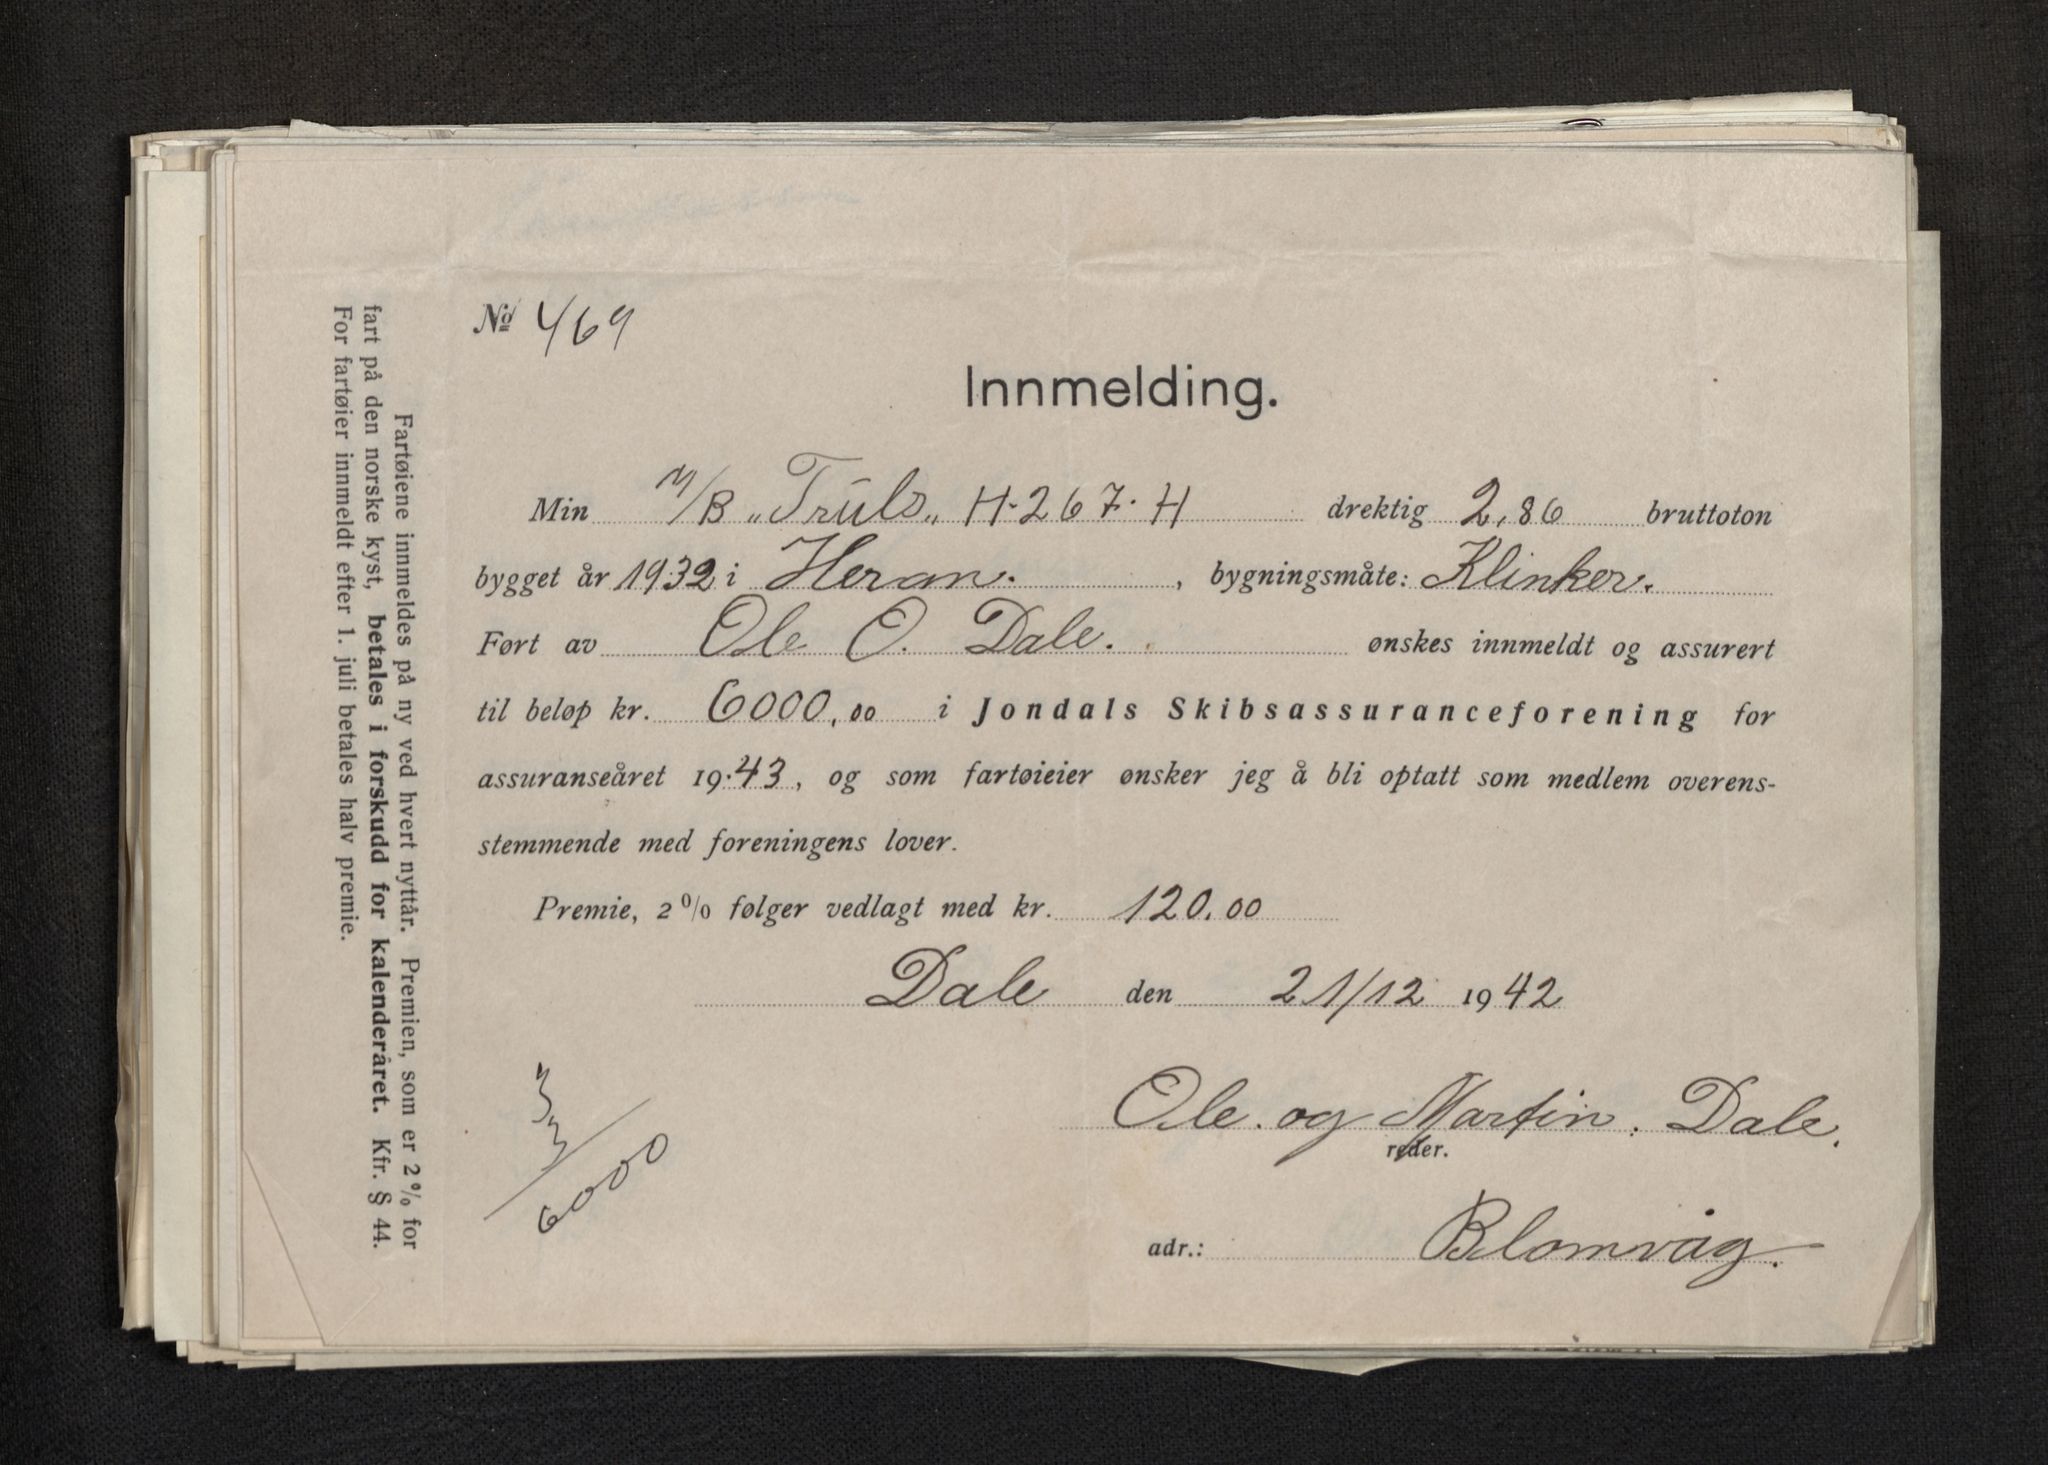 № 469
Innmelding.
Min M/B „Truls„ H-267-H drektig 2,86 bruttoton
bygget år 1932 i Heran. , bygningsmåte: Klinker.
Ført av Ole O. Dale. ønskes innmeldt og assurert
til beløp kr. 6000,00 i Jondals Skibsassuranceforening for
assuranseåret 19.43, og som fartøieier ønsker jeg å bli optatt som medlem overens-
stemmende med foreningens lover.
Premie, 2% følger vedlagt med kr. 120.00
Dale den 21/12 1942
Ole. og Martin. Dale.
reder.
adr.: Blomvåg.
6000
Fartøiene innmeldes på ny ved hvert nyttår. Premien, som er 2% for
fart på den norske kyst, betales i forskudd for kalenderåret. Kfr. § 44.
For fartøier innmeldt efter 1. juli betales halv premie.